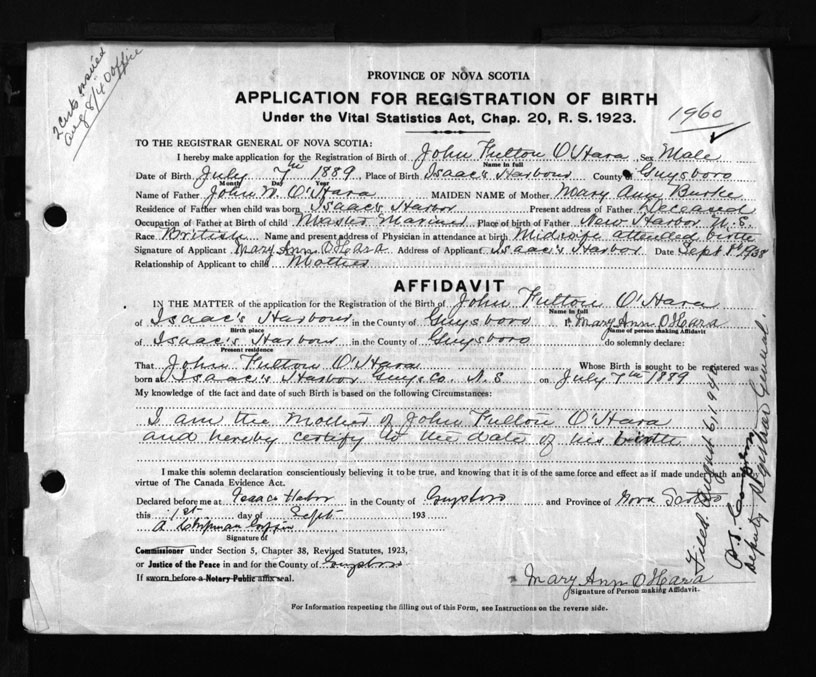 PROVINCE OF NOVA SCOTIA
APPLICATION FOR REGISTRATION OF BIRTH
Under the Vital Statistics Act, Chap. 20, R. S. 1923.
1960
2 Certs issued
Aug 8/40 Office
TO THE REGISTRAR GENERAL OF NOVA SCOTIA:
I hereby make application for the Registration of Birth of John Fulton O'Hara Sex Male
Name in full
Date of Birth July 7th 1889 Place of Birth Isaac's Harbour County of Guysboro
Month Day Year
Name of Father John W. O'Hara MAIDEN NAME of Mother Mary Ann Burke
Residence of Father when child was born Isaac's Harbor Present address of Father Deceased
Occupation of Father at Birth of child Master Mariner Place of birth of Father New Harbor N.S.
Race British Name and present address of Physician in attendance at birth Midwife attended birth
Signature of Applicant Mary Ann O'Hara Address of Applicant Isaac's Harbor Date Sept 1st 1938
Relationship of Applicant to child Mother
AFFIDAVIT
IN THE MATTER of the application for the Registration of the Birth of John Fulton O'Hara
Name in full
of Isaac's Harbour in the County of Guysboro I Mary Ann O'Hara
Birth place Name of person making Affidavit
of Isaac's Harbour in the County of Guysboro do solemnly declare:
Present residence
That John Fulton O'Hara Whose Birth is sought to be registered was
born at Isaac's Harbor Guys. Co. N.S on July 7th 1889
My knowledge of the fact and date of such Birth is based on the following Circumstances:
I am the Mother of John Fulton O'Hara
and hereby certify to the date of his birth
I make this solemn declaration conscientiously believing it to be true, and knowing that it is of the same force and effect as if made under oath and
virtue of The Canada Evidence Act.
Declared before me at Isaacs Harbor in the County of Guysboro and Province of Nova Scotia
this 1st day of Sept 193
A
Signature of
Commissioner under Section 5, Chapter 38, Revised Statutes, 1923,
or Justice of the Peace in and for the County of Guysboro
If sworn before a Notary Public affix seal.
Mary Ann O'Hara
Signature of Person making Affidavit.
For Information respecting the filling out of this Form, see Instructions on the reverse side.
Filed August 6, 1940
Deputy Registrar General.